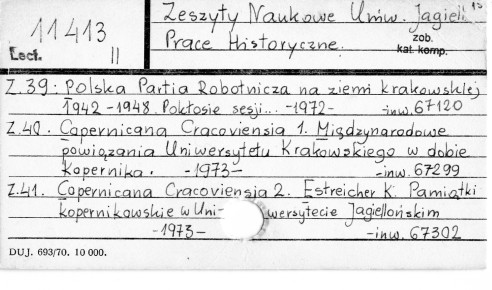 11413
Lect. II
Zeszyty Naukowe Uniw. Jagiell. 13
Prace Historyczne.
zob.
kat. komp.
Z.39: Polska Partia Robotnicza na ziemi krakowskiej
1942-1948. Pokłosie sesji... -1972- -inw. 67120
Z.40. Copernicana Cracoviensia 1. Międzynarodowe
powiązania Uniwersytetu Krakowskiego w dobie
Kopernika. -1973- -inw. 67299
Z.41. Copernicana Cracoviensia 2. Estreicher K. Pamiątki
kopernikowskie w Uniwersytecie Jagiellońskim
-1973- -inw. 67302
DUJ. 693/70. 10 000.